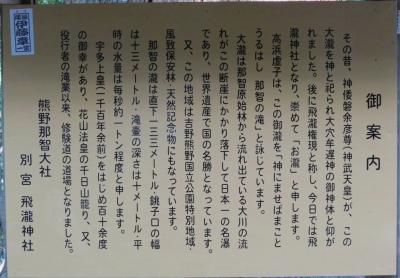 御案内
その昔、神倭磐余彦尊(神武天皇)が、この
大瀧を神と祀られ大穴牟遅神の御神体と仰が
れました。後に飛瀧権現と称し、今日では飛
瀧神社となり、崇めて「お瀧」と申します。
高浜虚子は、この御瀧を「神にませばまこと
うるはし 那智の滝」と詠じています。
大瀧は那智原始林から流れ出ている大川の流
れがこの断崖にかかり落下して日本一の名瀑
であり、世界遺産で国の名勝となっています。
又、この地域は吉野熊野国立公園特別地域・
風致保安林・天然記念物にもなっています。
那智の瀧は直下一三三メートル・銚子口の幅
は十三メートル・滝壷の深さは十メートル・平
時の水量は毎秒約一トン程度と申します。
宇多上皇(一千百年余前)をはじめ百十余度
の御幸があり、花山法皇の千日山籠り、又、
役行者の滝業以来、修験道の道場となりました。
熊野那智大社
別宮 飛瀧神社
伊藤章一